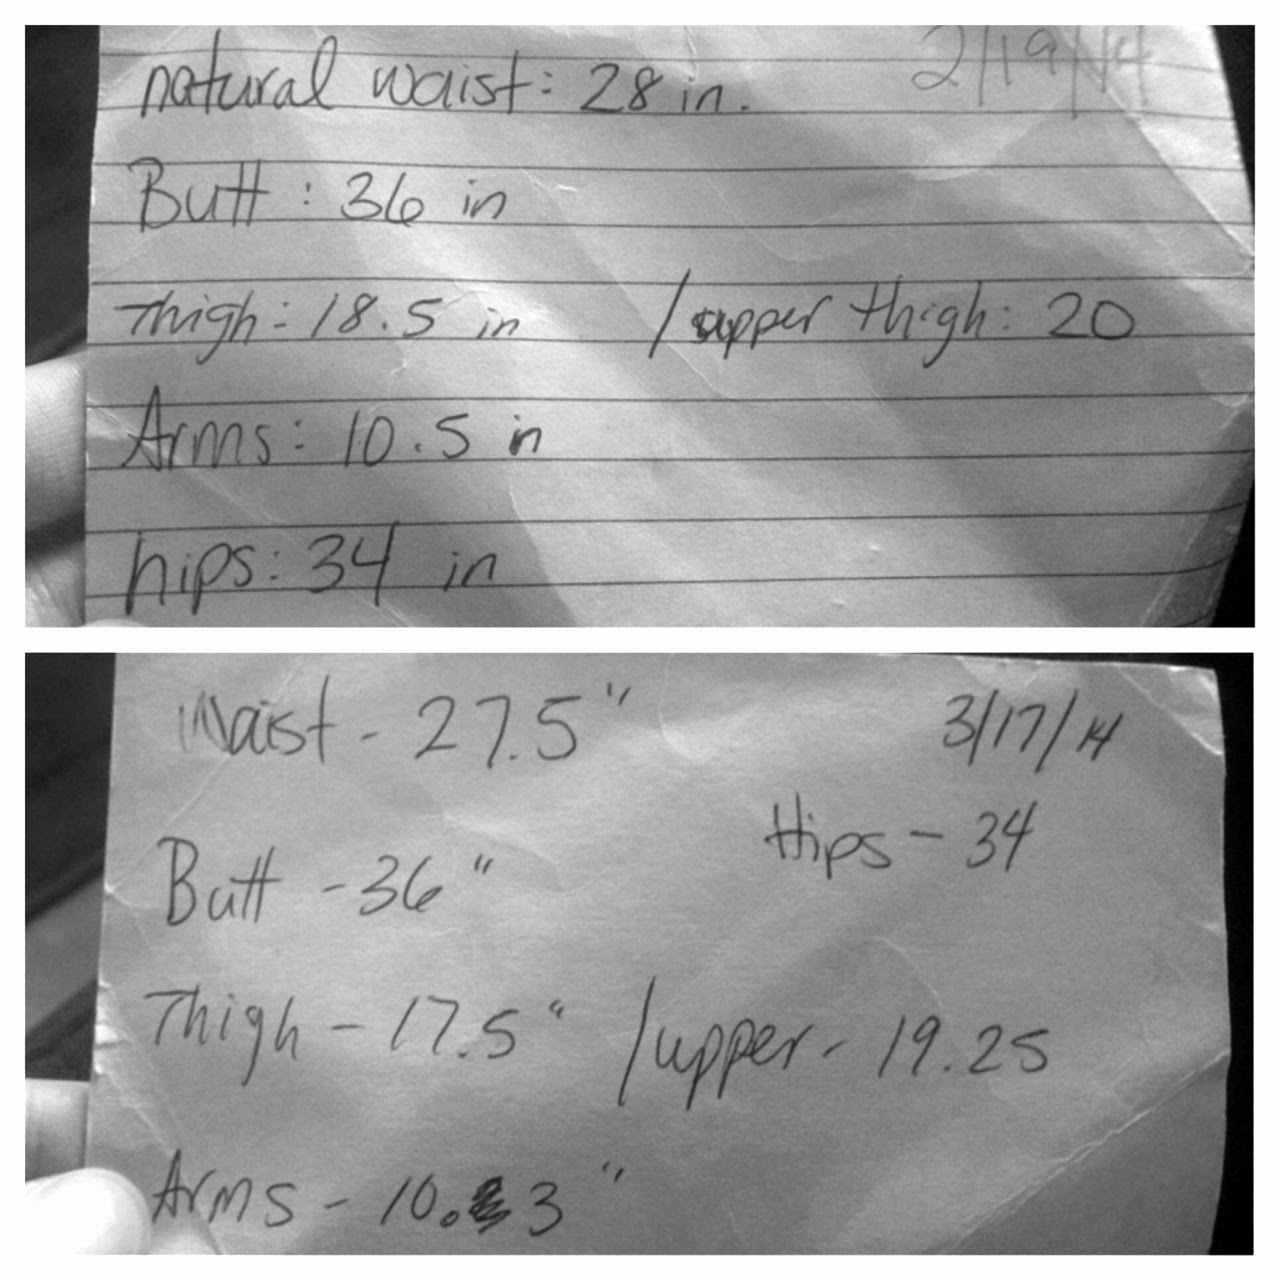 natural waist: 28 in. 2/19/14
Butt : 36 in
Thigh: 18.5 in /upper thigh: 20
Arms: 10.5 in
hips: 34 in
Waist - 27.5" 3/17/14
Hips - 34
Butt - 36"
Thigh - 17.5" /upper - 19.25
Arms - 10.3"